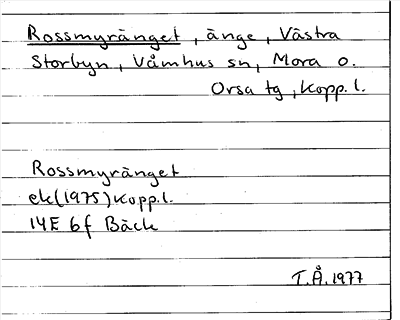 Rossmyränget, änge, Västra
Storbyn, Våmhus sn, Mora o.
Orsa tg, Kopp. l.
Rossmyränget
ek(1975)Kopp.l.
14E 6f Bäck
T.Å. 1977